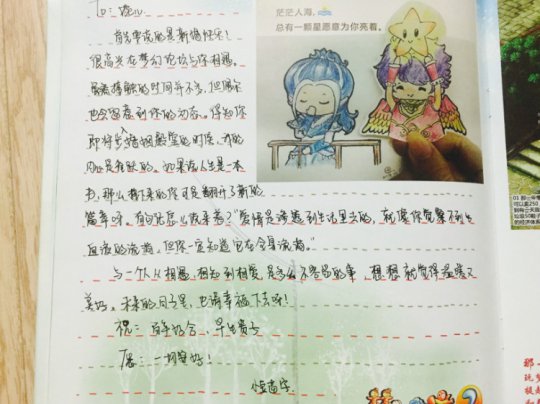 To:
首先要说的是新婚快乐!
很高兴在梦幻论坛与你相遇,
虽然接触的时间并不多,但偶尔
也会留意到你的动态。得知你
即将步入婚姻殿堂的时候,我的
内心是雀跃的。如果说人生是一本
书,那么接下来的你可是翻开了新的
篇章呀。有句话怎么说来着?"爱情是渗透到生活里去的,就像你觉察不到
血液的流淌,但你一定知道它在全身流淌。"
与一个人从相遇、相知到相爱,是多么不容易的事,想想就觉得温暖又
美好,未来的日子里,也请幸福下去呀!
祝:百年好合,早生贵子
愿:一切安好!
茫茫人海,
总有一颗星愿意为你亮着。